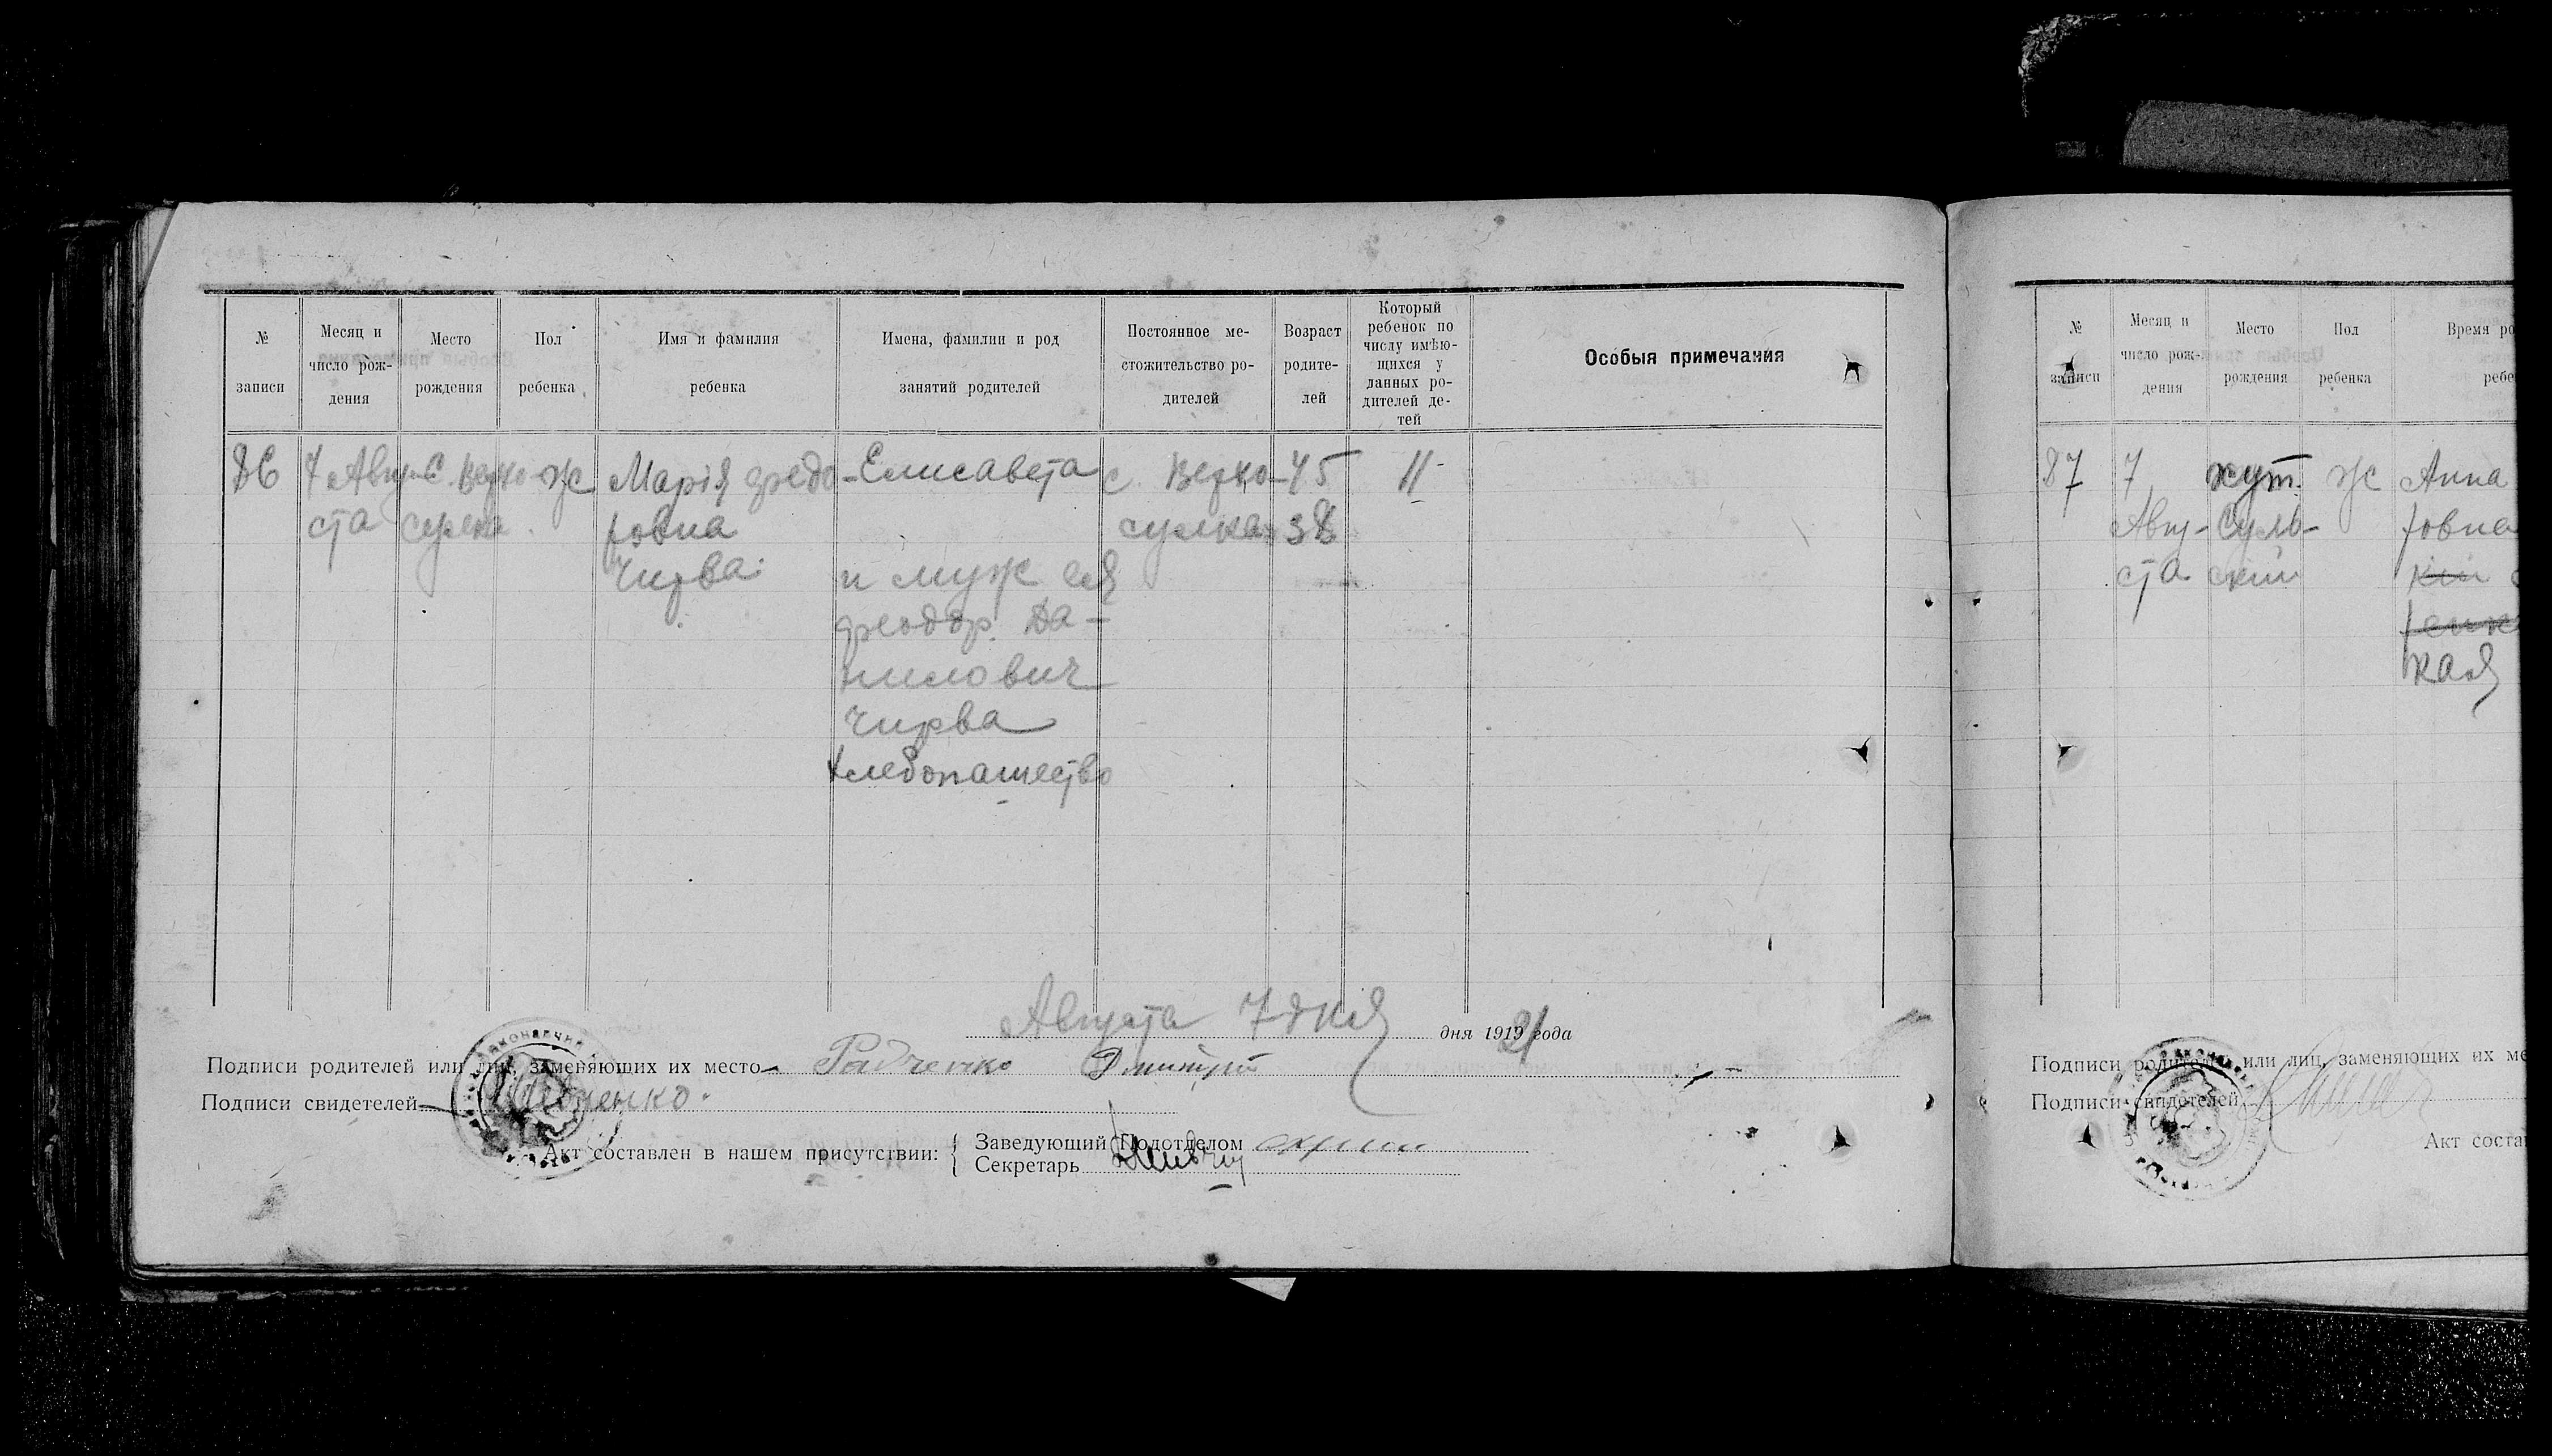 №
записи
Месяц и
число рож-
дения
Место
рождения
Пол
ребенка
Имя и фамилия
ребенка
Имена, фамилии и род
занятий родителей
Постоянное ме-
стожительство ро-
дителей
Возраст
родите-
лей
Который
ребенок по
числу имѣю-
щихся у
данных ро-
дителей де-
тей
Особыя примечания
86
7 Авгу-
ста
с. Верхо-
сулка
Ж
Марія Федо-
ровна
Чирва
Елисавета
и муж ея
Феодор Да-
нилович
Чирва
хлебопашество
с. Верхо-
сулка
45
38
11
Августа 7 дня
дня 1919 года
21
Подписи родителей или лиц, заменяющих их место
Радченко Дмитрий
Подписи свидетелей
Акт составлен в нашем присутствии:
Заведующий Подотделом
Секретарь
№
записи
Месяц и
число рож-
дения
Место
рождения
Пол
ребенка
Время ро
ребе
87
7
Авгу-
ста
хут.
Суль-
ский
Ж
Анна
ровна
кая
Подписи родителей или лиц, заменяющих их ме
Подписи свидетелей
Акт соста